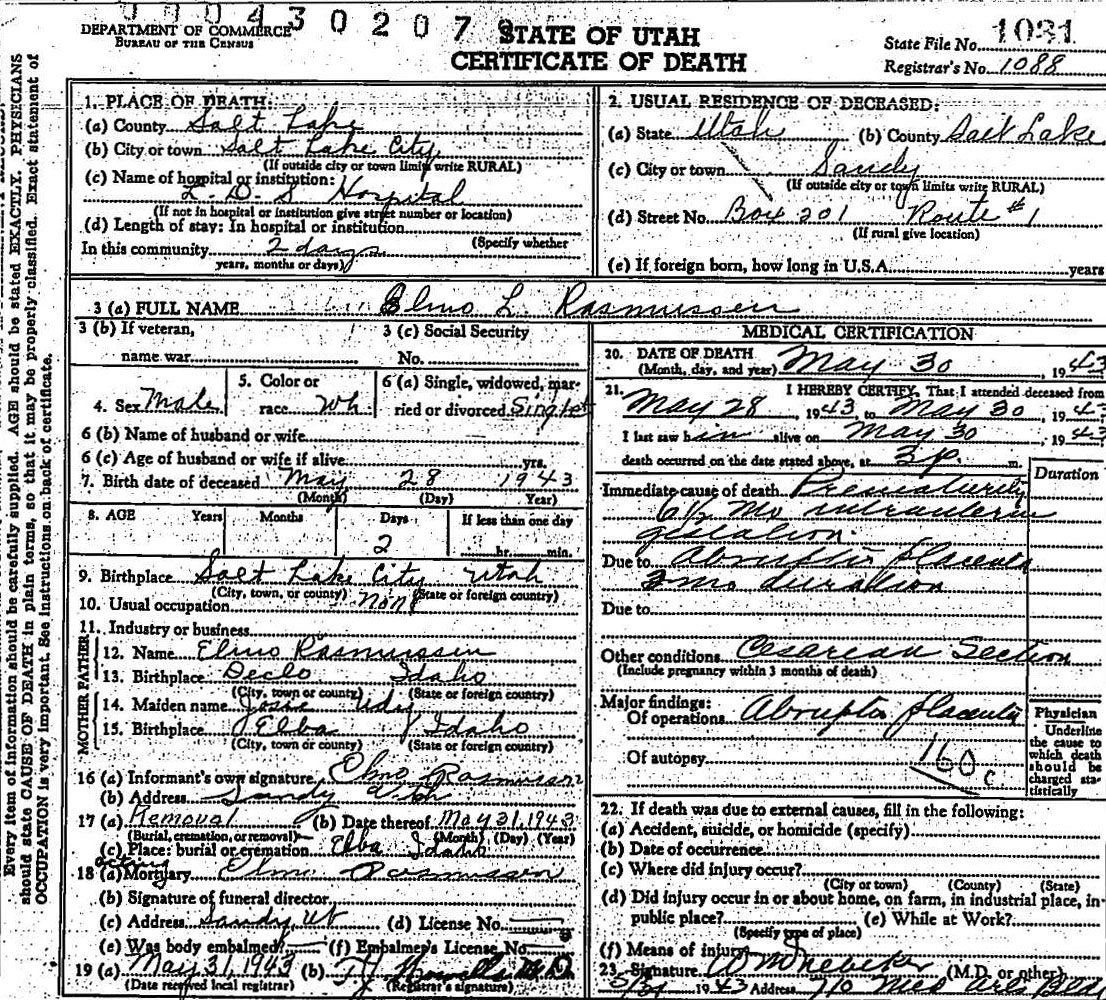 0004302079
DEPARTMENT OF COMMERCE
BUREAU OF THE CENSUS
STATE OF UTAH
CERTIFICATE OF DEATH
State File No. 1081
Registrar's No. 1088
1. PLACE OF DEATH:
(a) County Salt Lake
(b) City or town Salt Lake City
(If outside city or town limits write RURAL)
(c) Name of hospital or institution:
L. D. S Hospital
(If not in hospital or institution give street number or location)
(d) Length of stay: In hospital or institution
(Specify whether
In this community 2 days
years, months or days)
2. USUAL RESIDENCE OF DECEASED:
(a) State Utah (b) County Salt Lake
(c) City or town Sandy
(If outside city or town limits write RURAL)
(d) Street No. Box 201 Route #1
(If rural give location)
(e) If foreign born, how long in U.S.A. years
3 (a) FULL NAME Elmo L. Rasmussen
3 (b) If veteran,
name war
3 (c) Social Security
No.
4. Sex Male
5. Color or
race Wh
6 (a) Single, widowed, mar-
ried or divorced Single
6 (b) Name of husband or wife
6 (c) Age of husband or wife if alive yrs.
7. Birth date of deceased May 28 1943
(Month) (Day) Year)
8. AGE Years Months Days If less than one day
2 hr. min.
9. Birthplace Salt Lake City Utah
(City, town, or county) (State or foreign country)
10. Usual occupation none
11. Industry or business
FATHER
12. Name Elmo Rasmussen
13. Birthplace Declo Idaho
(City, town or county) (State or foreign country)
MOTHER
14. Maiden name Josie Udy
15. Birthplace Elba Idaho
(City, town or county) (State or foreign country)
16 (a) Informant's own signature Elmo Rasmussen
(b) Address Sandy Utah
17 (a) Removal (b) Date thereof May 31, 1943
(Burial, cremation, or removal) (Month) (Day) (Year)
(c) Place: burial or cremation Elba Idaho
acting
18 (a) Mortuary Elmo Rasmussen
(b) Signature of funeral director
(c) Address Sandy, Ut (d) License No.
(e) Was body embalmed? (f) Embalmer's License No.
19 (a) May 31, 1943 (b) M.D.
(Date received local registrar) (Registrar's signature)
MEDICAL CERTIFICATION
20. DATE OF DEATH
(Month, day, and year) May 30, 1943
21. I HEREBY CERTIFY, That I attended deceased from
May 28, 1943, to May 30, 1943
I last saw him alive on May 30, 1943
death occurred on the date stated above, at 3 p. m.
Duration
Immediate cause of death Prematurity
6½ Mo intrauterin
gestation.
Due to Abruptio placenta
3 mo duration
Due to
Other conditions Cesarean Section
(Include pregnancy within 3 months of death)
Major findings:
Of operations Abruptio placenta
Of autopsy
160c
Physician
Underline
the cause to
which death
should be
charged sta-
tistically
22. If death was due to external causes, fill in the following:
(a) Accident, suicide, or homicide (specify)
(b) Date of occurrence
(c) Where did injury occur?
(City or town) (County) (State)
(d) Did injury occur in or about home, on farm, in industrial place, in-
public place? (e) While at Work?
(Specify type of place)
(f) Means of injury
23. Signature WM Nebeker (M.D. or other)
5/31 1943 Address 710 Med Arts Bldg
Every item of information should be carefully supplied. AGE should be stated EXACTLY. PHYSICIANS
should state CAUSE OF DEATH in plain terms, so that it may be properly classified. Exact statement of
OCCUPATION is very important. See instructions on back of certificate.